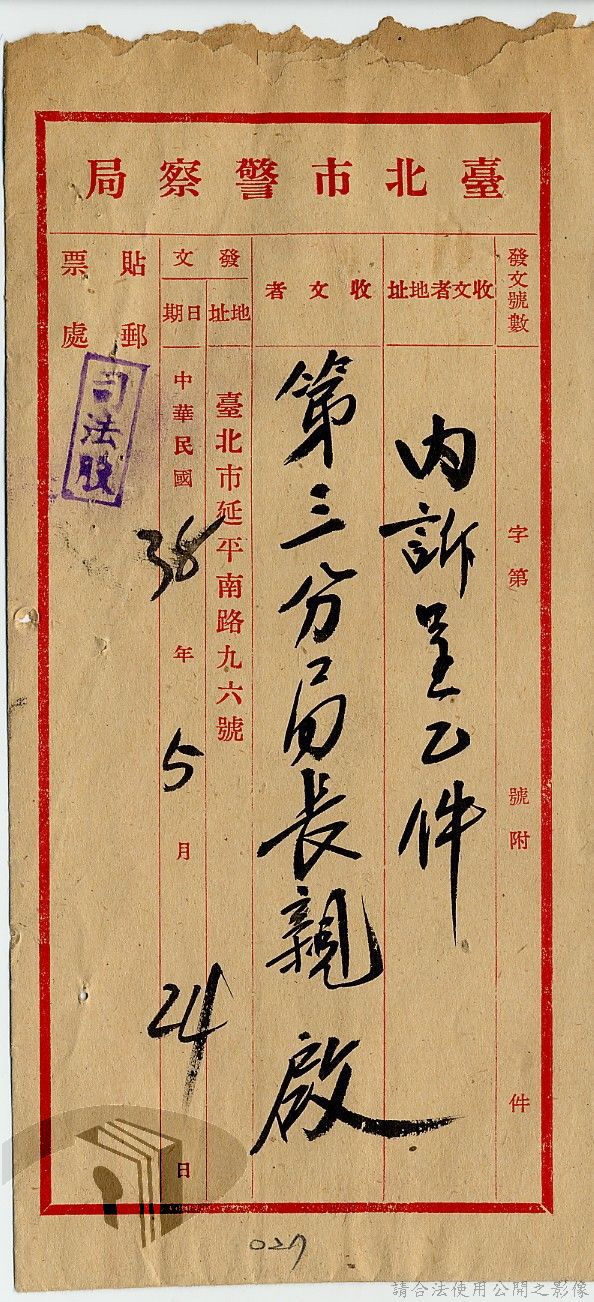 臺北市警察局
發文號數
字第 號附 件
收文者地址
內訴呈乙件
收文者
第三分局長親啟
發文
地址
臺北市延平南路九六號
日期
中華民國38年5月24日
貼郵票處
司法股
027
請合法使用公開之影像